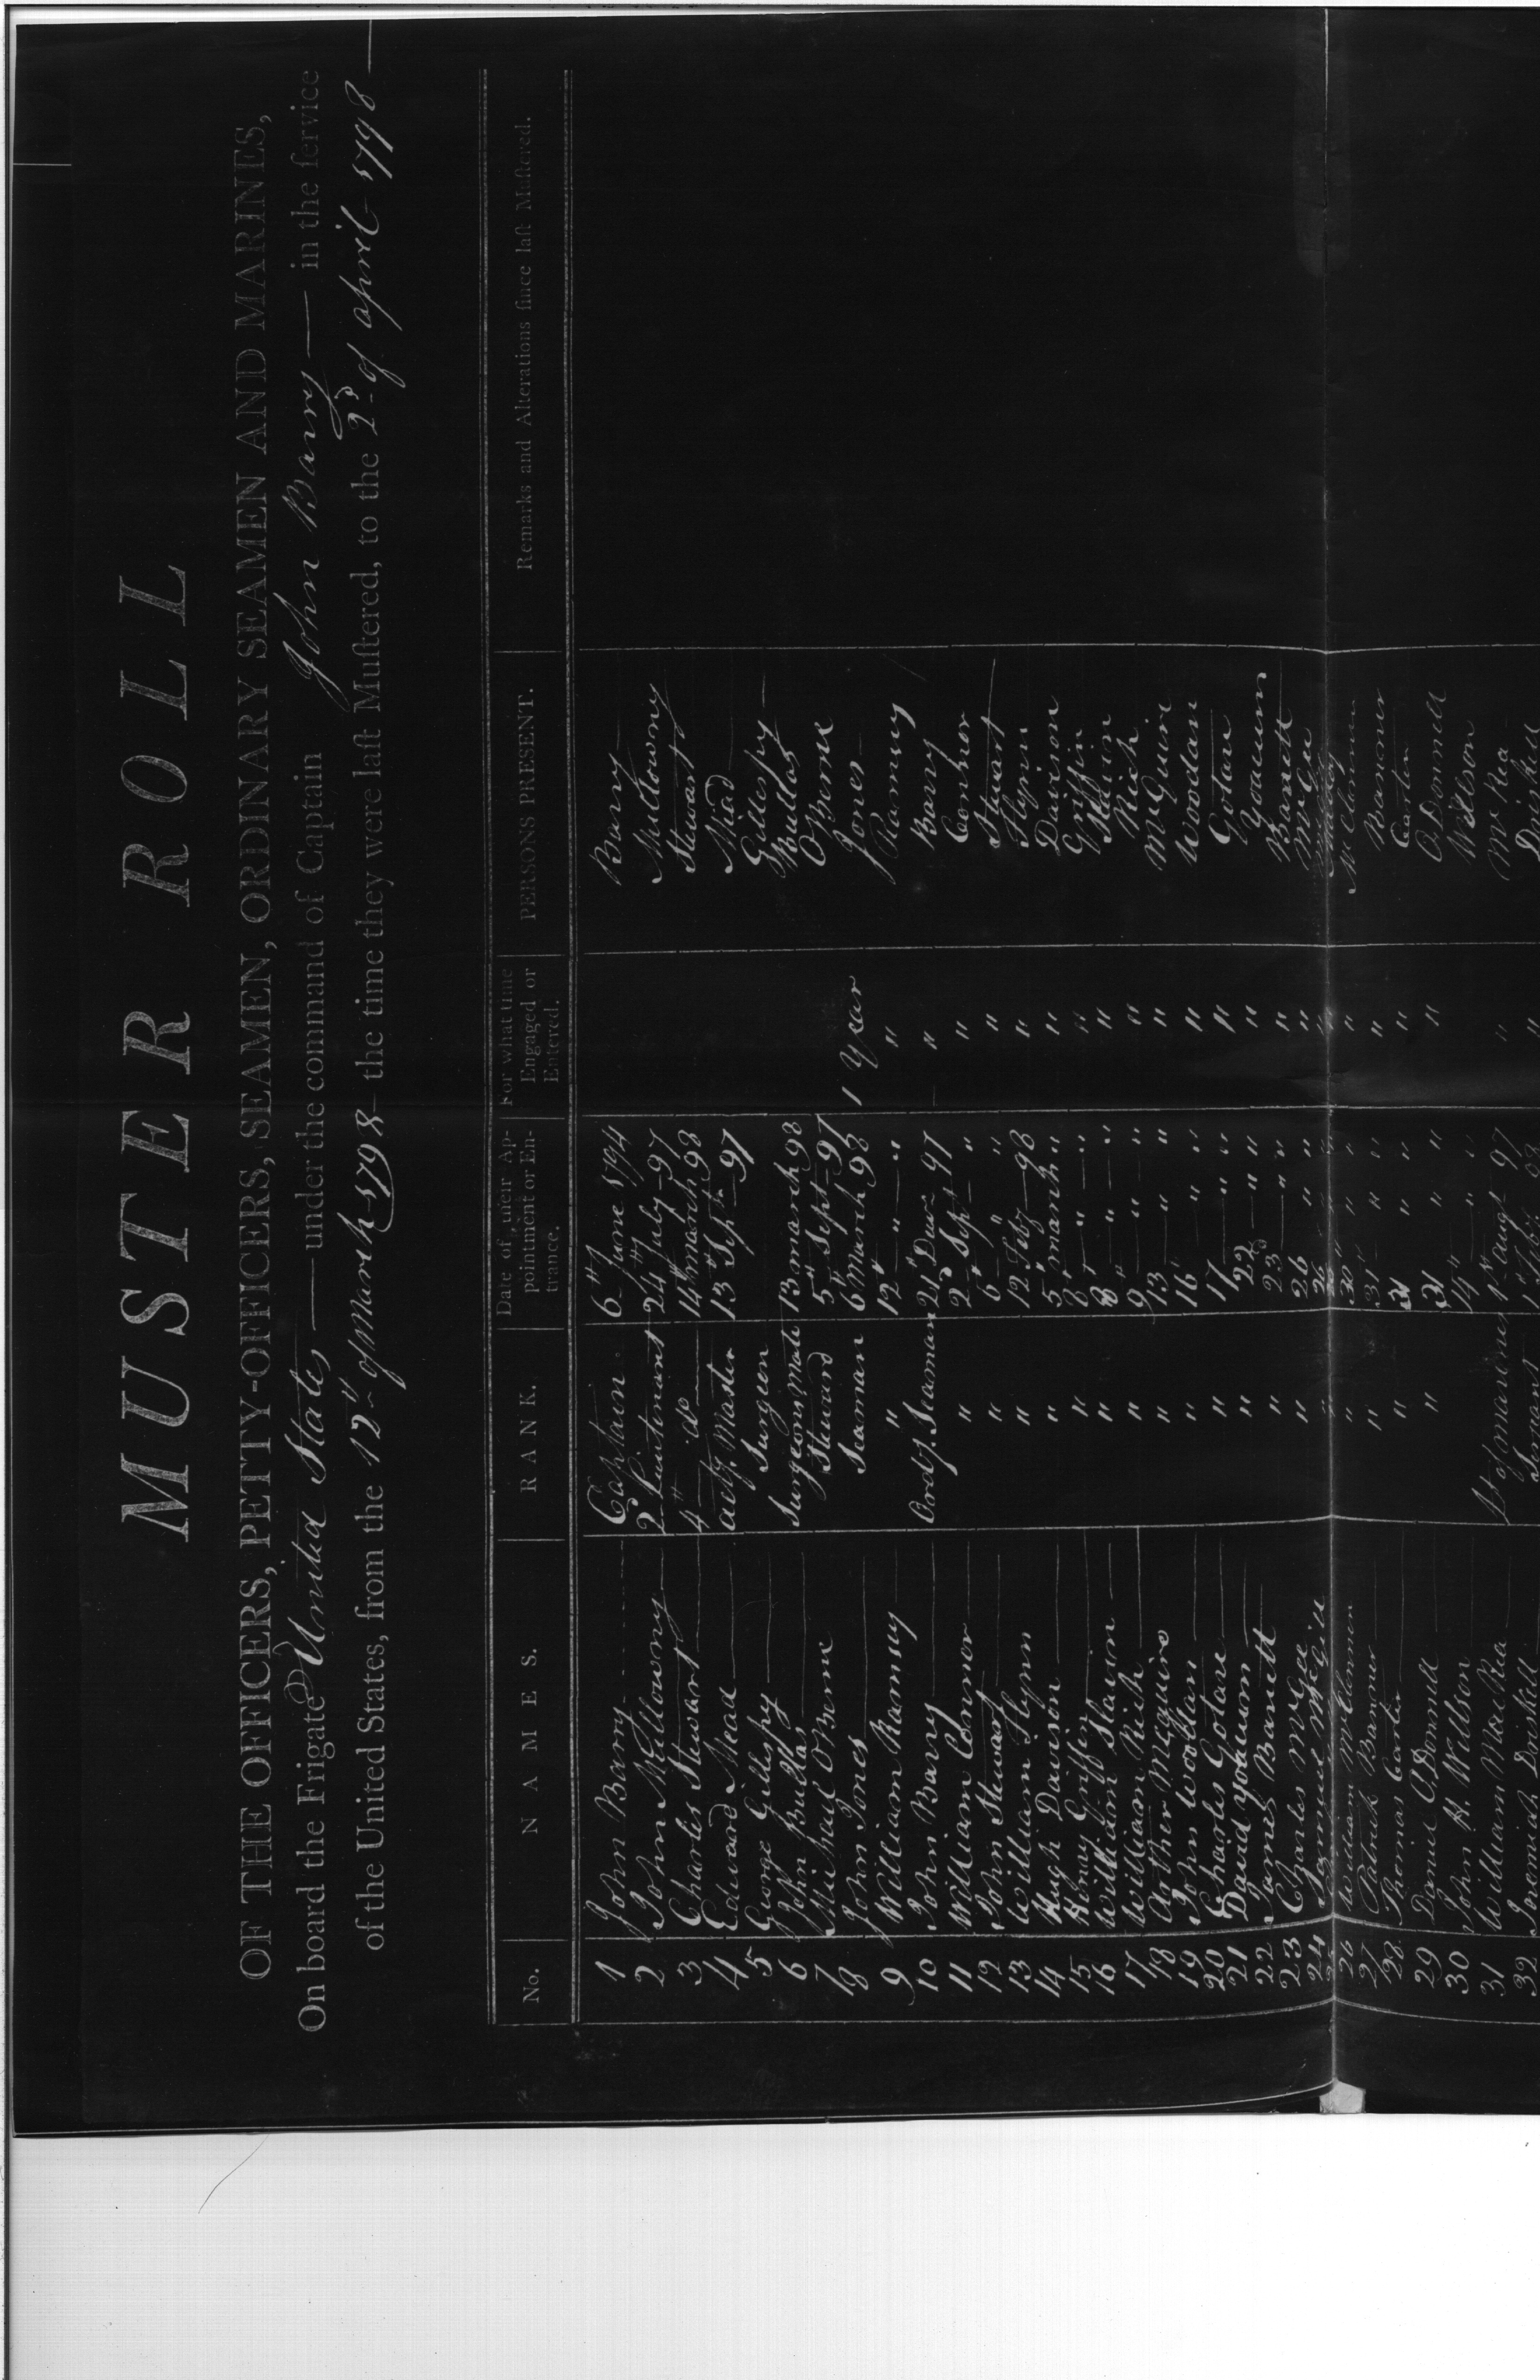 MUSTER ROLL
OF THE OFFICERS, PETTY-OFFICERS, SEAMEN, ORDINARY SEAMEN AND MARINES,
On board the Frigate United States — under the command of Captain John Barry — in the ſervice
of the United States, from the 12" of March 1798 the time they were laſt Muſtered, to the 2d of april 1798
No. NAMES. RANK. Date of their Appointment or Entrance. For what time Engaged or Entered. PERSONS PRESENT. Remarks and Alterations ſince laſt Muſtered.
1 John Barry Captain 6" June 1794 Barry
2 John Mullowny 2d Lieutenant 24" July 97 Mullowny
3 Charles Stewart 4" do 14" March 98 Stewart
4 Edward Mead actg. Master 13" Sepr 97 Mead
5 George Gillespy Surgeon Gillespy
6 John Bullas Surgeons Mate 13 march 98 Bullas
7 Michael O'Berne Steward 5" Sept 97 O'Berne
8 John Jones Seaman 6 March 98 1 Year Jones
9 William Ramsey " 12" " " " Ramsey
10 John Barry Ordy. Seaman 21" 97 " Barry
11 William Connor " 2d Sepr " " Connor
12 John Stewart " 6" " " " Stewart
13 William Flynn " 12 98 " Flynn
14 Hugh Davison " 5" march " " Davison
15 Henry Griffin " 8" " " " Griffin
16 William Slavin " 8 " " " Slavin
17 William Rich " 9" " " " Rich
18 Arther McGuire " 13 " " " McGuire
19 John Woodlan " 16" " " " Woodlan
20 Charles " 17 " " "
21 David Yocum " 22 " " " Yocum
22 James Barrett " 23d " " " Barrett
23 Charles McGee " 26 " " " McGee
24
25
26 William McClennen " 30" " " " McClennen
27 Patrick " 31" " " "
28 Thomas Carter " 31 " " " Carter
29 Daniel O.Donnell " 31 " " " O.Donnell
30 John H. Willson 14" " " Willson
31 William MacRea Lt of marines 1st Augt 97 " McRea
32